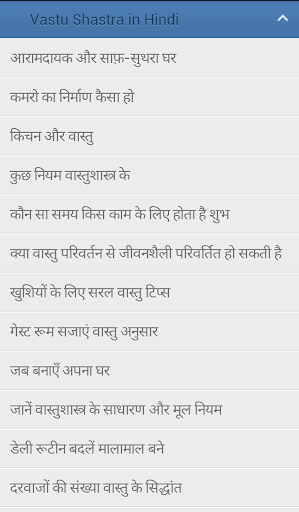 Vastu Shastra in Hindi
आरामदायक और साफ़-सुथरा घर
कमरो का निर्माण कैसा हो
किचन और वास्तु
कुछ नियम वास्तुशास्त्र के
कौन सा समय किस काम के लिए होता है शुभ
क्या वास्तु परिवर्तन से जीवनशैली परिवर्तित हो सकती है
खुशियों के लिए सरल वास्तु टिप्स
गेस्ट रूम सजाएं वास्तु अनुसार
जब बनाएँ अपना घर
जानें वास्तुशास्त्र के साधारण और मूल नियम
डेली रूटीन बदलें मालामाल बने
दरवाजों की संख्या वास्तु के सिद्धांत